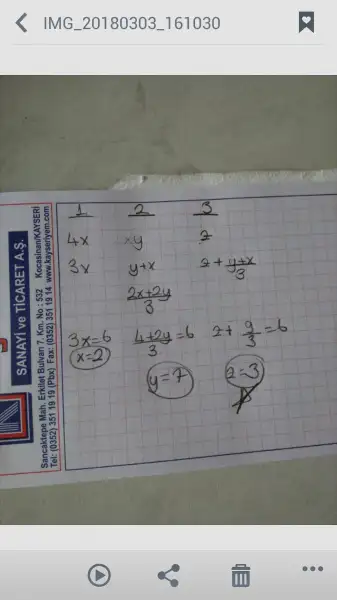 IMG_20180303_161030
1 2 3
4x xy z
3x y+x z+ y+x/3
2x+2y/3
3x=6 4+2y/3=6 z+ 9/3=6
x=2 y=7 z=3
SANAYİ ve TİCARET A.Ş.
Sancaktepe Mah. Erkilet Bulvarı 7. Km. No : 532 Kocasinan/KAYSERİ
Tel: (0352) 351 19 19 (Pbx) Fax: (0352) 351 19 14 www.kayseriyem.com